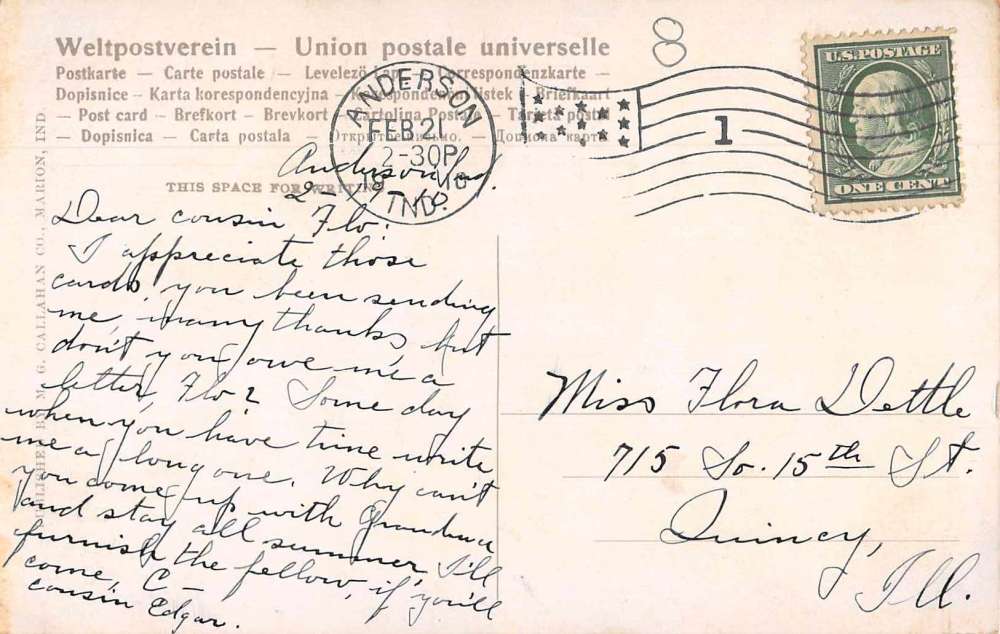 Weltpostverein — Union postale universelle
Postkarte — Carte postale — Levelező Correspondenzkarte —
Dopisnice — Karta korespondencyjna — listek — Briefkaart
— Post card — Brefkort — Brevkort — Cartolina Postale — Tarjeta postal
— Dopisnica — Carta postala — Открытое письмо. — Дописна карта
THIS SPACE FOR WRITING
PUBLISHED BY M. G. CALLAHAN CO., MARION, IND.
ANDERSON
FEB 21
2-30P
IND.
1
U.S. POSTAGE
ONE CENT
8
Anderson, Ind.
Dear cousin Flo:
I appreciate those
cards, you been sending
me, many thanks but
don't you owe me a
letter, Flo? Some day
when you have time write
me a long one. Why can't
you come up with Grandma
and stay all summer, I'll
furnish the fellow, if you'll
come, C—
cousin Edgar.
Miss Flora Dettle
715 So. 15th St.
Quincy,
Ill.